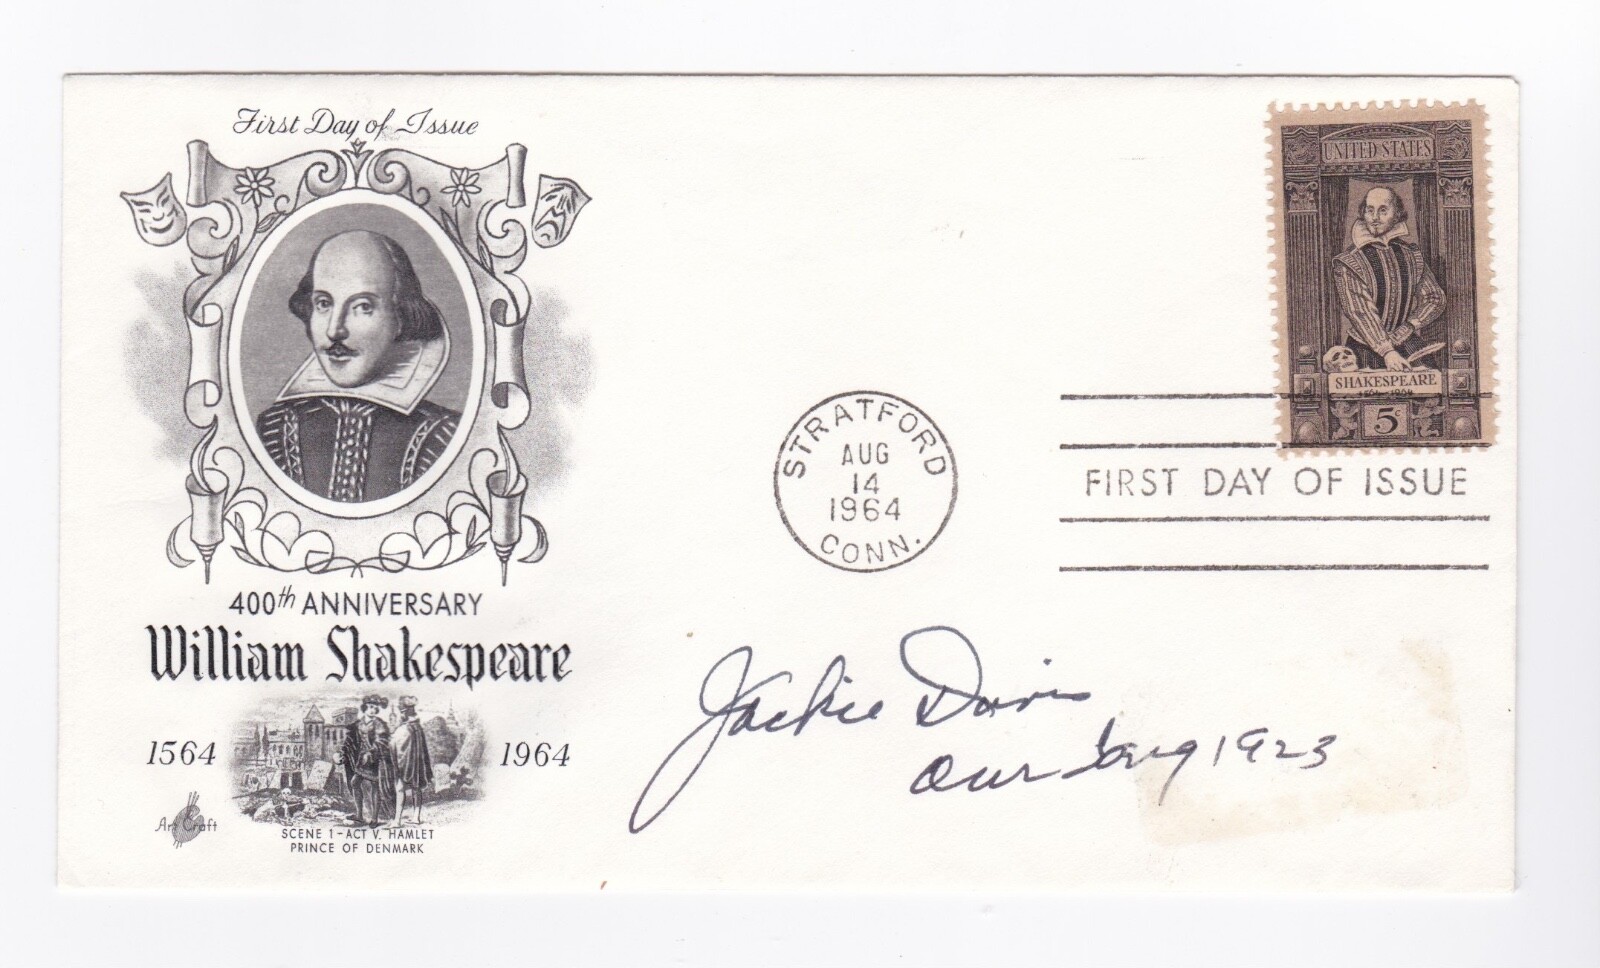 First Day of Issue
400th ANNIVERSARY
William Shakespeare
1564 1964
Art Craft
SCENE 1-ACT V. HAMLET
PRINCE OF DENMARK
UNITED STATES
SHAKESPEARE
1564 1964
5c
STRATFORD
AUG
14
1964
CONN.
FIRST DAY OF ISSUE
Jackie Davis
Our Gang 1923